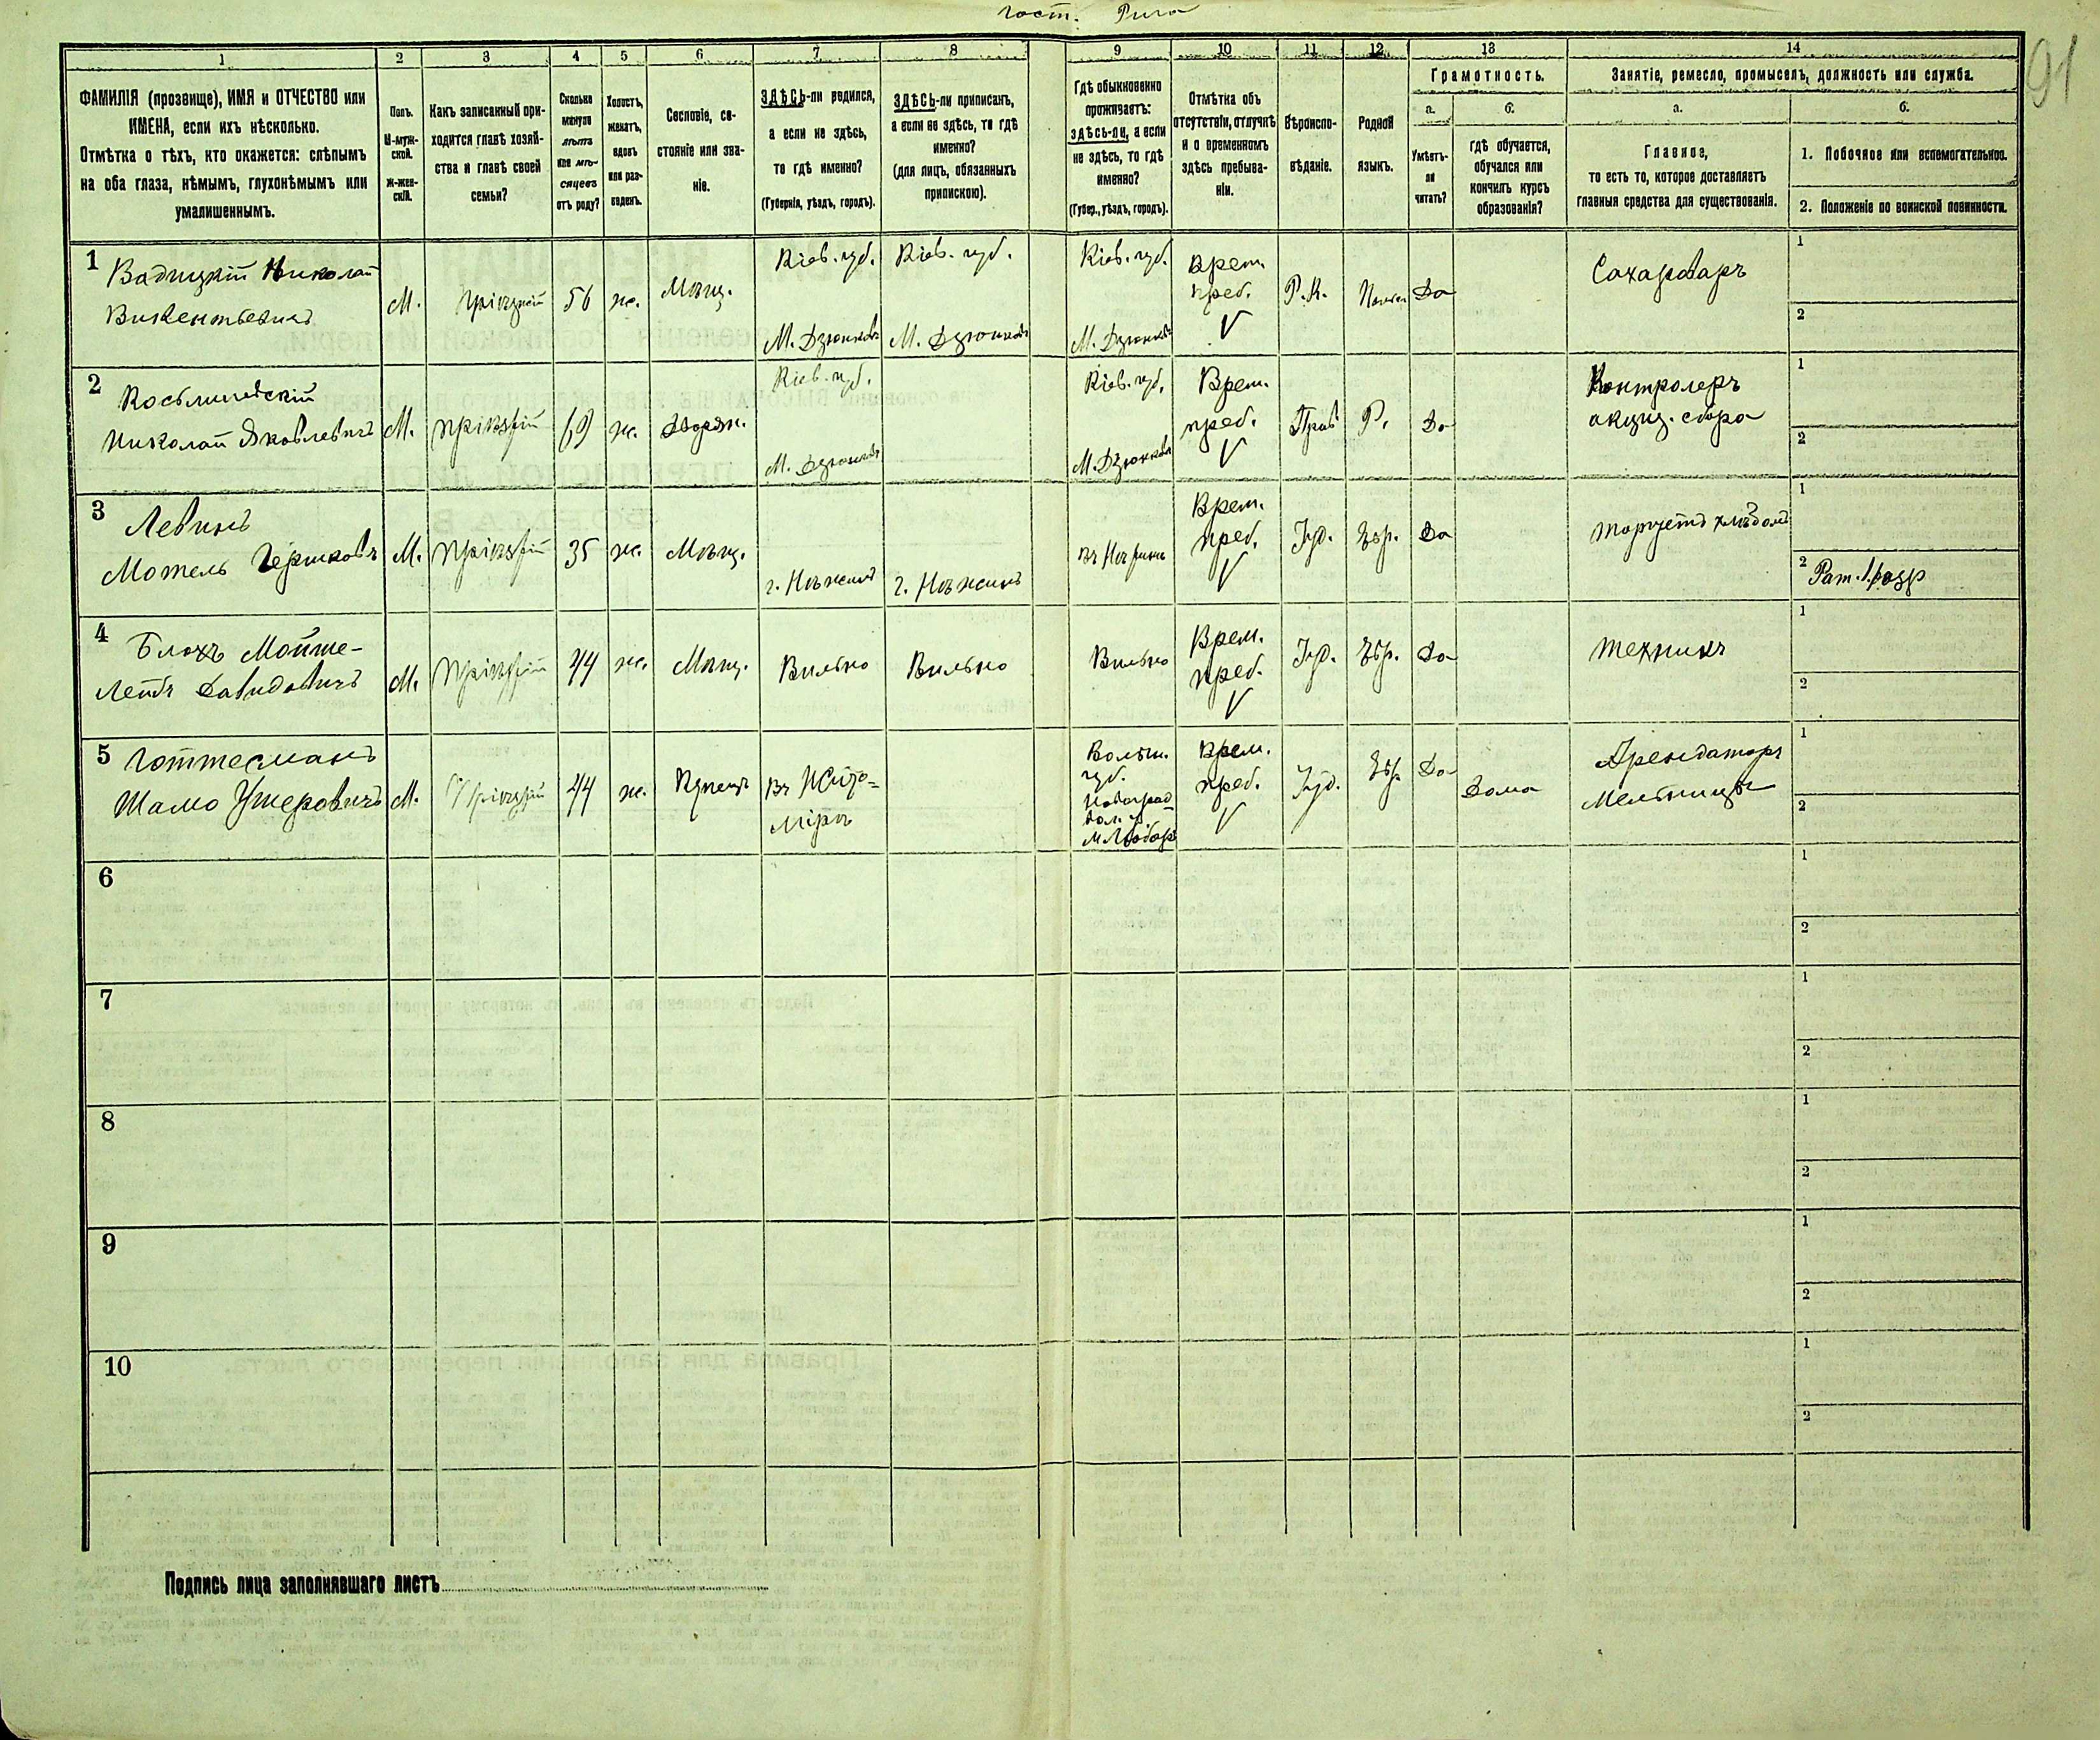 гост. Рига
91
1 2 3 4 5 6 7 8 9 10 11 12 13 14
ФАМИЛІЯ (прозвище), ИМЯ и ОТЧЕСТВО или
ИМЕНА, если ихъ нѣсколько.
Отмѣтка о тѣхъ, кто окажется: слѣпымъ
на оба глаза, нѣмымъ, глухонѣмымъ или
умалишеннымъ.
Полъ.
М-муж-
ской.
Ж-жен-
скій.
Какъ записанный при-
ходится главѣ хозяй-
ства и главѣ своей
семьи?
Сколько
минуло
лѣтъ
или мѣ-
сяцевъ
отъ роду?
Холостъ,
женатъ,
вдовъ
или раз-
веденъ.
Сословіе, со-
стояніе или зва-
ніе.
ЗДѢСЬ-ли родился,
а если не здѣсь,
то гдѣ именно?
(Губернія, уѣздъ, городъ).
ЗДѢСЬ-ли приписанъ,
а если не здѣсь, то гдѣ
именно?
(для лицъ, обязанныхъ
припискою).
Гдѣ обыкновенно
проживаетъ:
здѣсь-ли, а если
не здѣсь, то гдѣ
именно?
(Губер., уѣздъ, городъ).
Отмѣтка объ
отсутствіи, отлучкѣ
и о временномъ
здѣсь пребыва-
ніи.
Вѣроиспо-
вѣданіе.
Родной
языкъ.
Грамотность.
а.
Умѣетъ-
ли
читать?
б.
гдѣ обучается,
обучался или
кончилъ курсъ
образованія?
Занятіе, ремесло, промыселъ, должность или служба.
а.
Главное,
то есть то, которое доставляетъ
главныя средства для существованія.
б.
1. Побочное или вспомогательное.
2. Положеніе по воинской повинности.
1
Николай
Викентьевичъ
М.
пріѣзжій
56
ж.
Мѣщ.
Кіев. губ.
М. Дзюнковъ
Кіев. губ.
М. Дзюнковъ
Кіев. губ.
М. Дзюнковъ
Врем.
преб.
V
Р.К.
Да
Сахароваръ
1
2
2
Николай Яковлевичъ
М.
пріѣзжій
69
ж.
Дворян.
Кіев. губ.
М. Дзюнковъ
Кіев. губ.
М. Дзюнковъ
Врем.
преб.
V
Прав
Р.
Да
Контролеръ
акциз. сбора
1
2
3
Левинъ
Мотель Гершковъ
М.
пріѣзжій
35
ж.
Мѣщ.
г. Нѣжинъ
г. Нѣжинъ
въ Нѣжинѣ
Врем.
преб.
V
Іуд.
Евр.
Да
торгуетъ хлѣбомъ
1
2 Рат. 1. разр
4
Блохъ Мойше-
Лейбъ Давидовичъ
М.
пріѣзжій
44
ж.
Мѣщ.
Вильно
Вильно
Вильно
Врем.
преб.
V
Іуд.
Евр.
Да
техникъ
1
2
5
Готтесманъ
Шамо Ушеровичъ
М.
Пріѣзжій
44
ж.
Купецъ
Въ Жито-
мірѣ
Волын.
губ.
Новоград
вол. у.
м Любаръ
Врем.
преб.
V
Іуд.
Евр.
Да
Дома
Арендаторъ
мельницы
1
2
6
1
2
7
1
2
8
1
2
9
1
2
10
1
2
Подпись лица заполнявшаго листъ